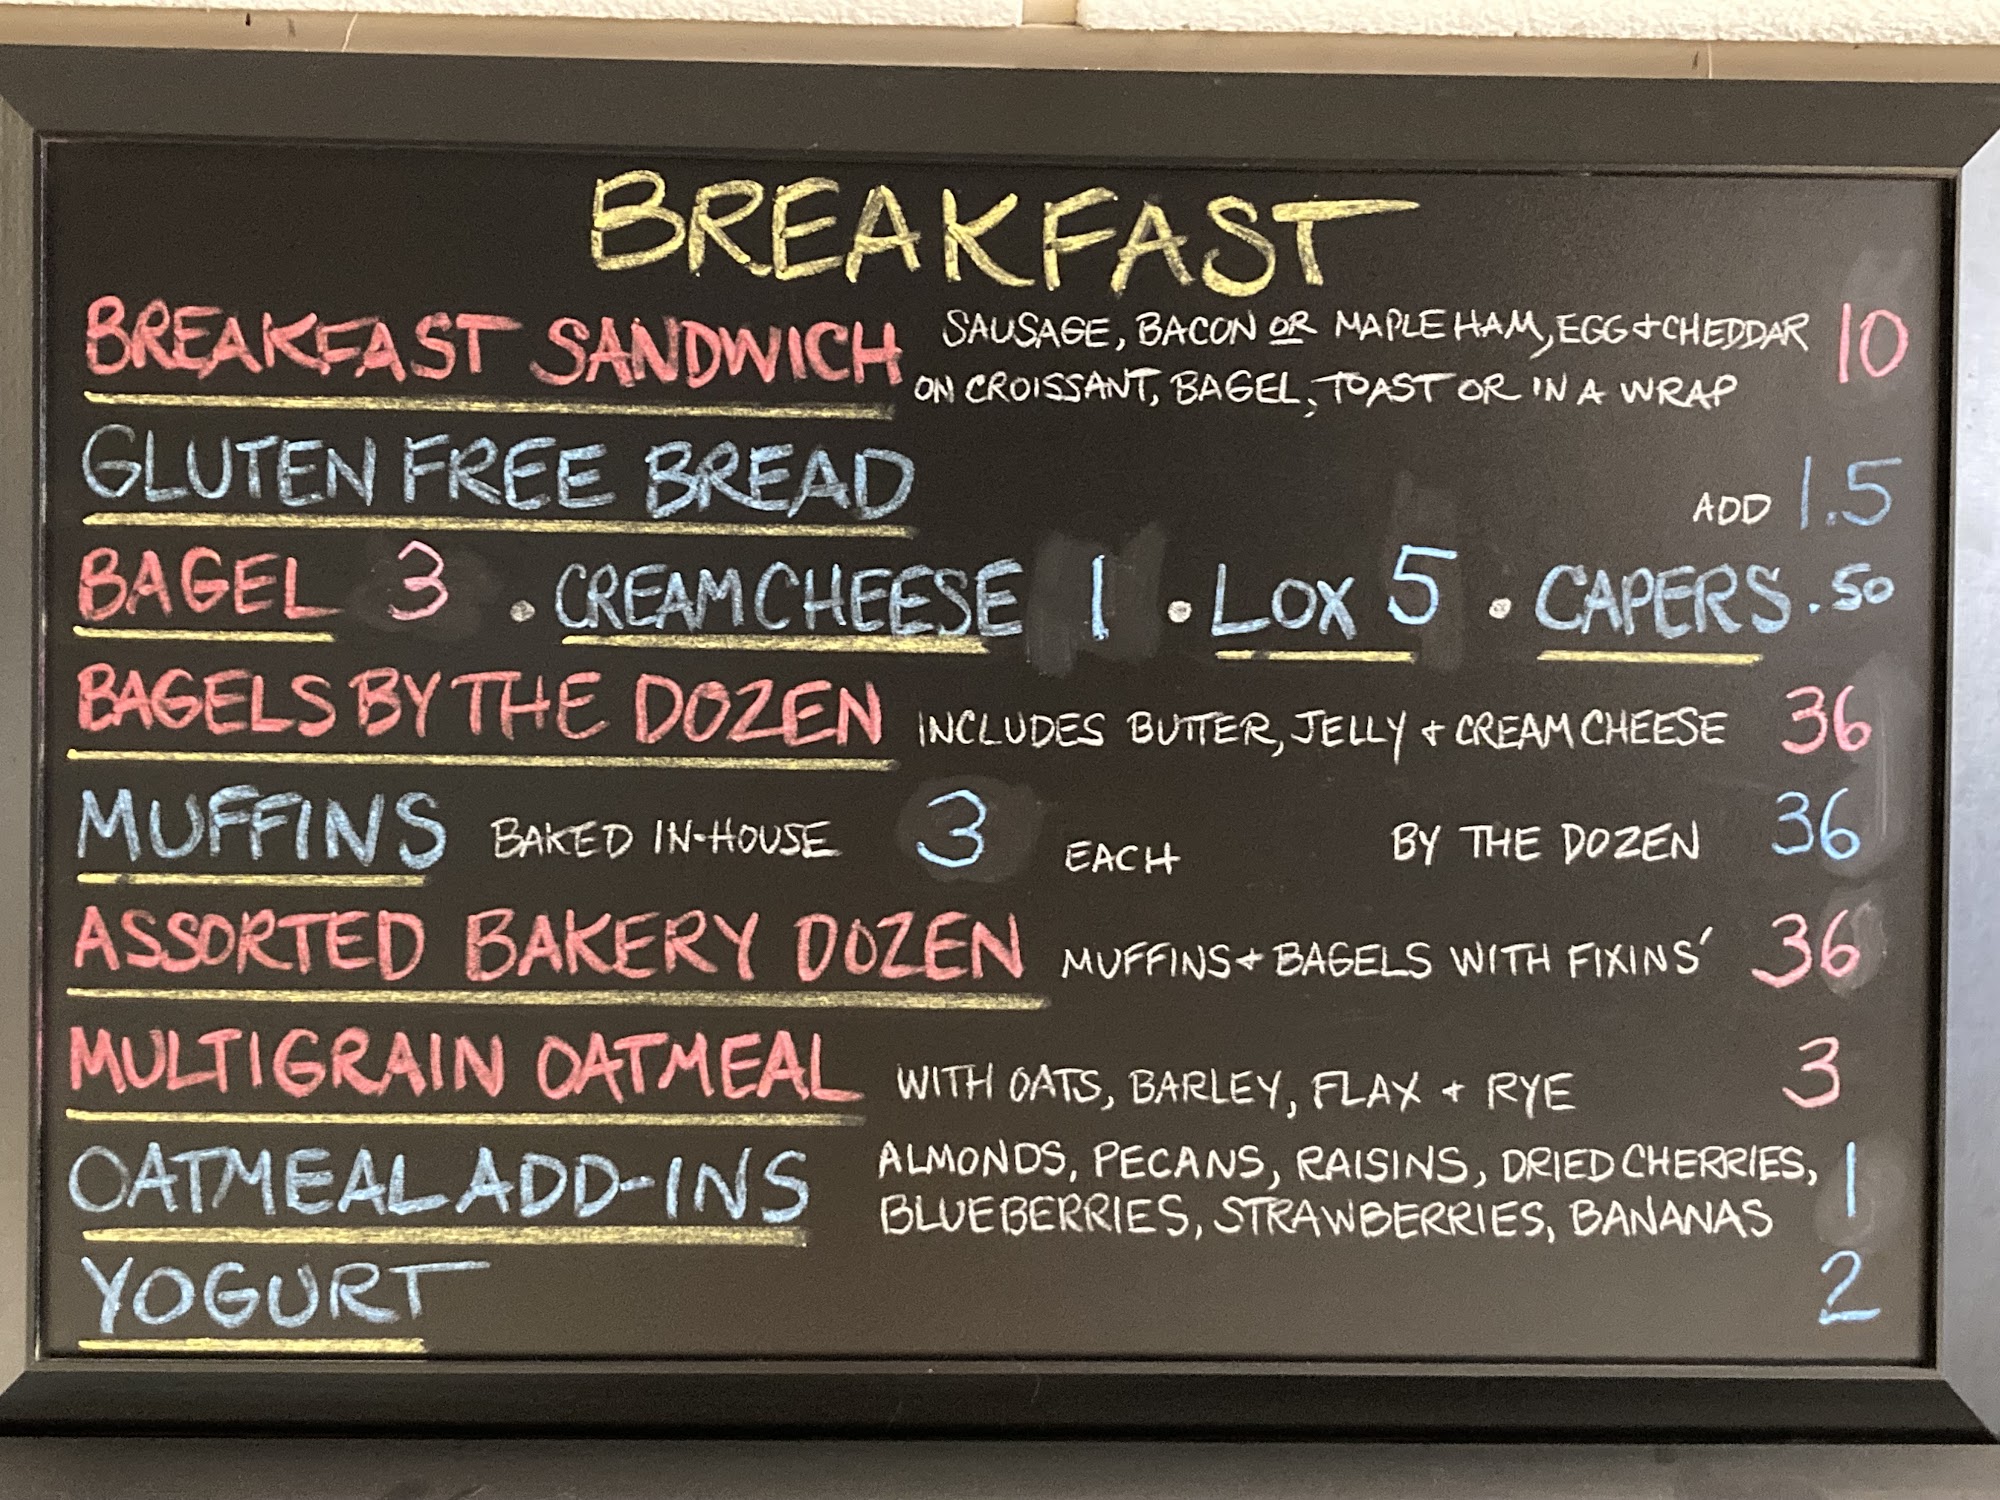 BREAKFAST
BREAKFAST SANDWICH SAUSAGE, BACON OR MAPLE HAM, EGG + CHEDDAR 10
ON CROISSANT, BAGEL, TOAST OR IN A WRAP
GLUTEN FREE BREAD ADD 1.5
BAGEL 3 • CREAM CHEESE 1 • LOX 5 • CAPERS .50
BAGELS BY THE DOZEN INCLUDES BUTTER, JELLY + CREAM CHEESE 36
MUFFINS BAKED IN-HOUSE 3 EACH BY THE DOZEN 36
ASSORTED BAKERY DOZEN MUFFINS + BAGELS WITH FIXINS' 36
MULTIGRAIN OATMEAL WITH OATS, BARLEY, FLAX + RYE 3
OATMEAL ADD-INS ALMONDS, PECANS, RAISINS, DRIED CHERRIES, 1
BLUEBERRIES, STRAWBERRIES, BANANAS
YOGURT 2